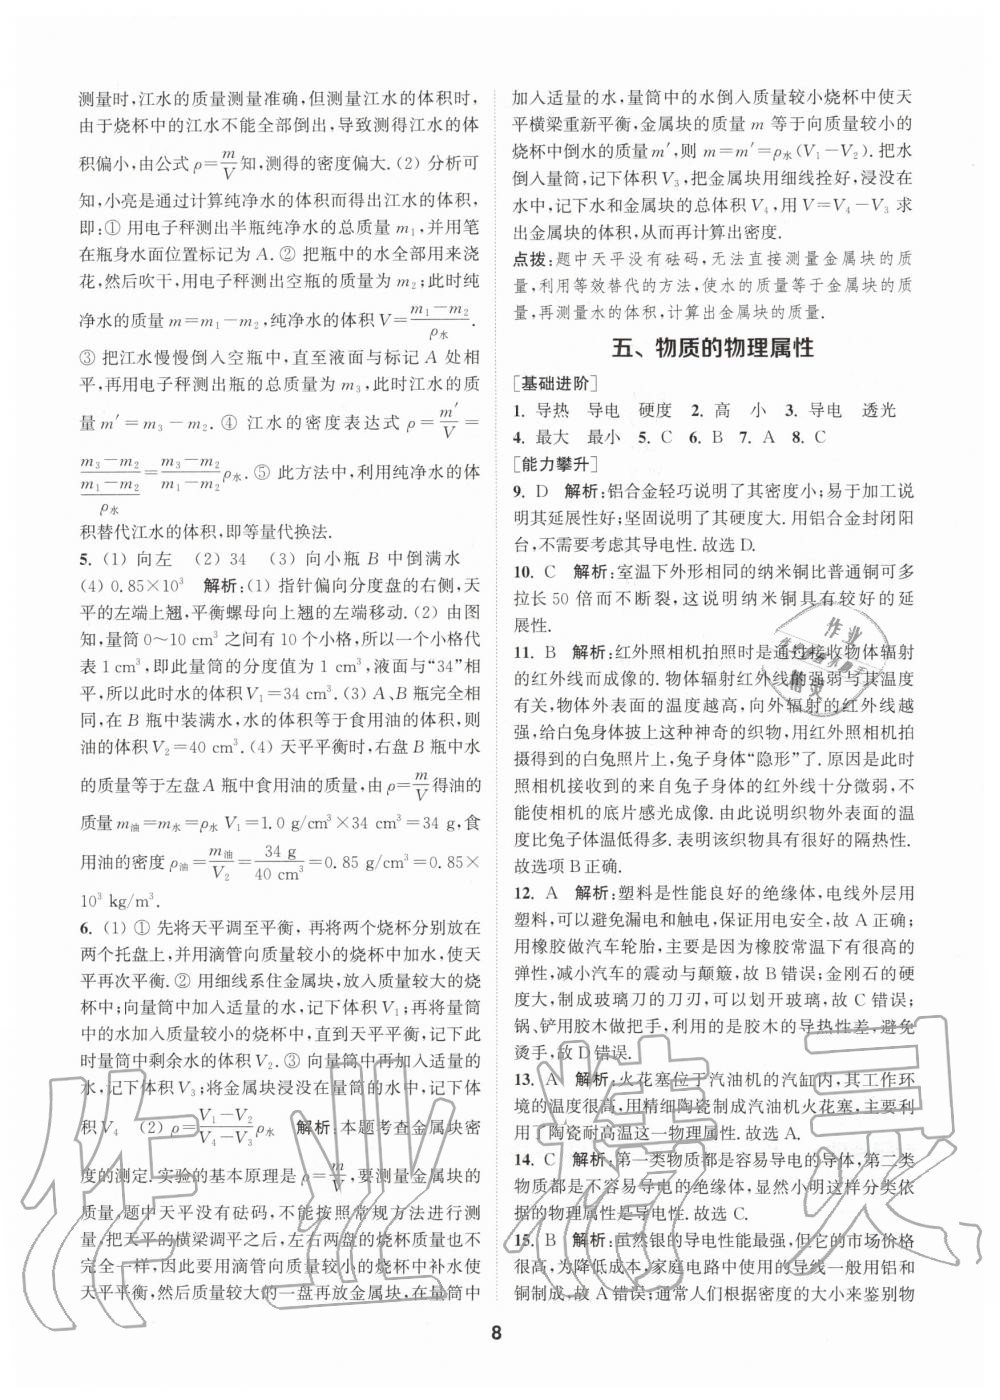 测量时,江水的质量测量准确,但测量江水的体积时,
由于烧杯中的江水不能全部倒出,导致测得江水的体
积偏小,由公式 ρ=m/V 知,测得的密度偏大.(2) 分析可
知,小亮是通过计算纯净水的体积而得出江水的体积,
即:① 用电子秤测出半瓶纯净水的总质量 m₁,并用笔
在瓶身水面位置标记为 A. ② 把瓶中的水全部用来浇
花,然后吹干,用电子秤测出空瓶的质量为 m₂;此时纯
净水的质量 m=m₁-m₂,纯净水的体积 V=(m₁-m₂)/ρ水.
③ 把江水慢慢倒入空瓶中,直至液面与标记 A 处相
平,再用电子秤测出瓶的总质量为 m₃,此时江水的质
量 m′=m₃-m₂. ④ 江水的密度表达式 ρ=m′/V=
(m₃-m₂)/((m₁-m₂)/ρ水)=(m₃-m₂)/(m₁-m₂)ρ水. ⑤ 此方法中,利用纯净水的体
积替代江水的体积,即等量代换法.
5. (1) 向左 (2) 34 (3) 向小瓶 B 中倒满水
(4) 0.85×10³ 解析:(1) 指针偏向分度盘的右侧,天
平的左端上翘,平衡螺母向上翘的左端移动.(2) 由图
知,量筒 0～10 cm³ 之间有 10 个小格,所以一个小格代
表 1 cm³,即此量筒的分度值为 1 cm³,液面与“34”相
平,所以此时水的体积 V₁=34 cm³.(3) A、B 瓶完全相
同,在 B 瓶中装满水,水的体积等于食用油的体积,则
油的体积 V₂=40 cm³.(4) 天平平衡时,右盘 B 瓶中水
的质量等于左盘 A 瓶中食用油的质量,由 ρ=m/V 得油的
质量 m油=m水=ρ水 V₁=1.0 g/cm³×34 cm³=34 g,食
用油的密度 ρ油=m油/V₂=34 g/40 cm³=0.85 g/cm³=0.85×
10³ kg/m³.
6. (1) ① 先将天平调至平衡,再将两个烧杯分别放在
两个托盘上,并用滴管向质量较小的烧杯中加水,使天
平再次平衡. ② 用细线系住金属块,放入质量较大的烧
杯中;向量筒中加入适量的水,记下体积 V₁;再将量筒
中的水加入质量较小的烧杯中,直到天平平衡,记下此
时量筒中剩余水的体积 V₂. ③ 向量筒中再加入适量的
水,记下体积 V₃;将金属块浸没在量筒的水中,记下体
积 V₄ (2) ρ=(V₁-V₂)/(V₄-V₃)ρ水 解析:本题考查金属块密
度的测定.实验的基本原理是 ρ=m/V,要测量金属块的
质量,题中天平没有砝码,不能按照常规方法进行测
量,把天平的横梁调平之后,左右两盘的烧杯质量也不
完全一样,因此要用滴管向质量较小的烧杯中补水使
天平平衡,然后质量较大的一盘再放金属块,在量筒中
加入适量的水,量筒中的水倒入质量较小烧杯中使天
平横梁重新平衡,金属块的质量 m 等于向质量较小的
烧杯中倒水的质量 m′,则 m=m′=ρ水(V₁-V₂).把水
倒入量筒,记下体积 V₃,把金属块用细线拴好,浸没在
水中,记下水和金属块的总体积 V₄,用 V=V₄-V₃ 求
出金属块的体积,从而再计算出密度.
点拨:题中天平没有砝码,无法直接测量金属块的质
量,利用等效替代的方法,使水的质量等于金属块的质
量,再测量水的体积,计算出金属块的质量.
五、物质的物理属性
[基础进阶]
1. 导热 导电 硬度 2. 高 小 3. 导电 透光
4. 最大 最小 5. C 6. B 7. A 8. C
[能力攀升]
9. D 解析:铝合金轻巧说明了其密度小;易于加工说
明其延展性好;坚固说明了其硬度大.用铝合金封闭阳
台,不需要考虑其导电性.故选 D.
10. C 解析:室温下外形相同的纳米铜比普通铜可多
拉长 50 倍而不断裂,这说明纳米铜具有较好的延
展性.
11. B 解析:红外照相机拍照时是通过接收物体辐射
的红外线而成像的.物体辐射红外线的强弱与其温度
有关,物体外表面的温度越高,向外辐射的红外线越
强,给白兔披上这种神奇的织物,用红外照相机拍
摄得到的白兔照片上,兔子身体“隐形”了.原因是此
时照相机接收到的来自兔子身体的红外线十分微弱,不
能使相机的底片感光成像.由此说明织物外表面的温
度比兔子体温低得多.表明该织物具有很好的隔热性.
故选项 B 正确.
12. A 解析:塑料是性能良好的绝缘体,电线外层用
塑料,可以避免漏电和触电,保证用电安全,故 A 正确;
用橡胶做汽车轮胎,主要是因为橡胶常温下有很高的
弹性,减小汽车的震动与颠簸,故 B 错误;金刚石的硬
度大,制成玻璃刀的刀刃,可以划开玻璃,故 C 错误;
锅、铲用胶木做把手,利用的是胶木的导热性差,避免
烫手,故 D 错误.
13. A 解析:火花塞位于汽油机的汽缸内,其工作环
境的温度很高,用精细陶瓷制成汽油机火花塞,主要利
用了陶瓷耐高温这一物理属性.故选 A.
14. C 解析:第一类物质都是容易导电的导体,第二类
物质都是不容易导电的绝缘体,显然小明这样分类依
据的物理属性是导电性.故选 C.
15. B 解析:虽然银的导电性能最强,但它的市场价格
很高,为降低成本,家庭电路中使用的导线一般用铝和
铜制成,故 A 错误;通常人们根据密度的大小来鉴别物
8
作业精灵